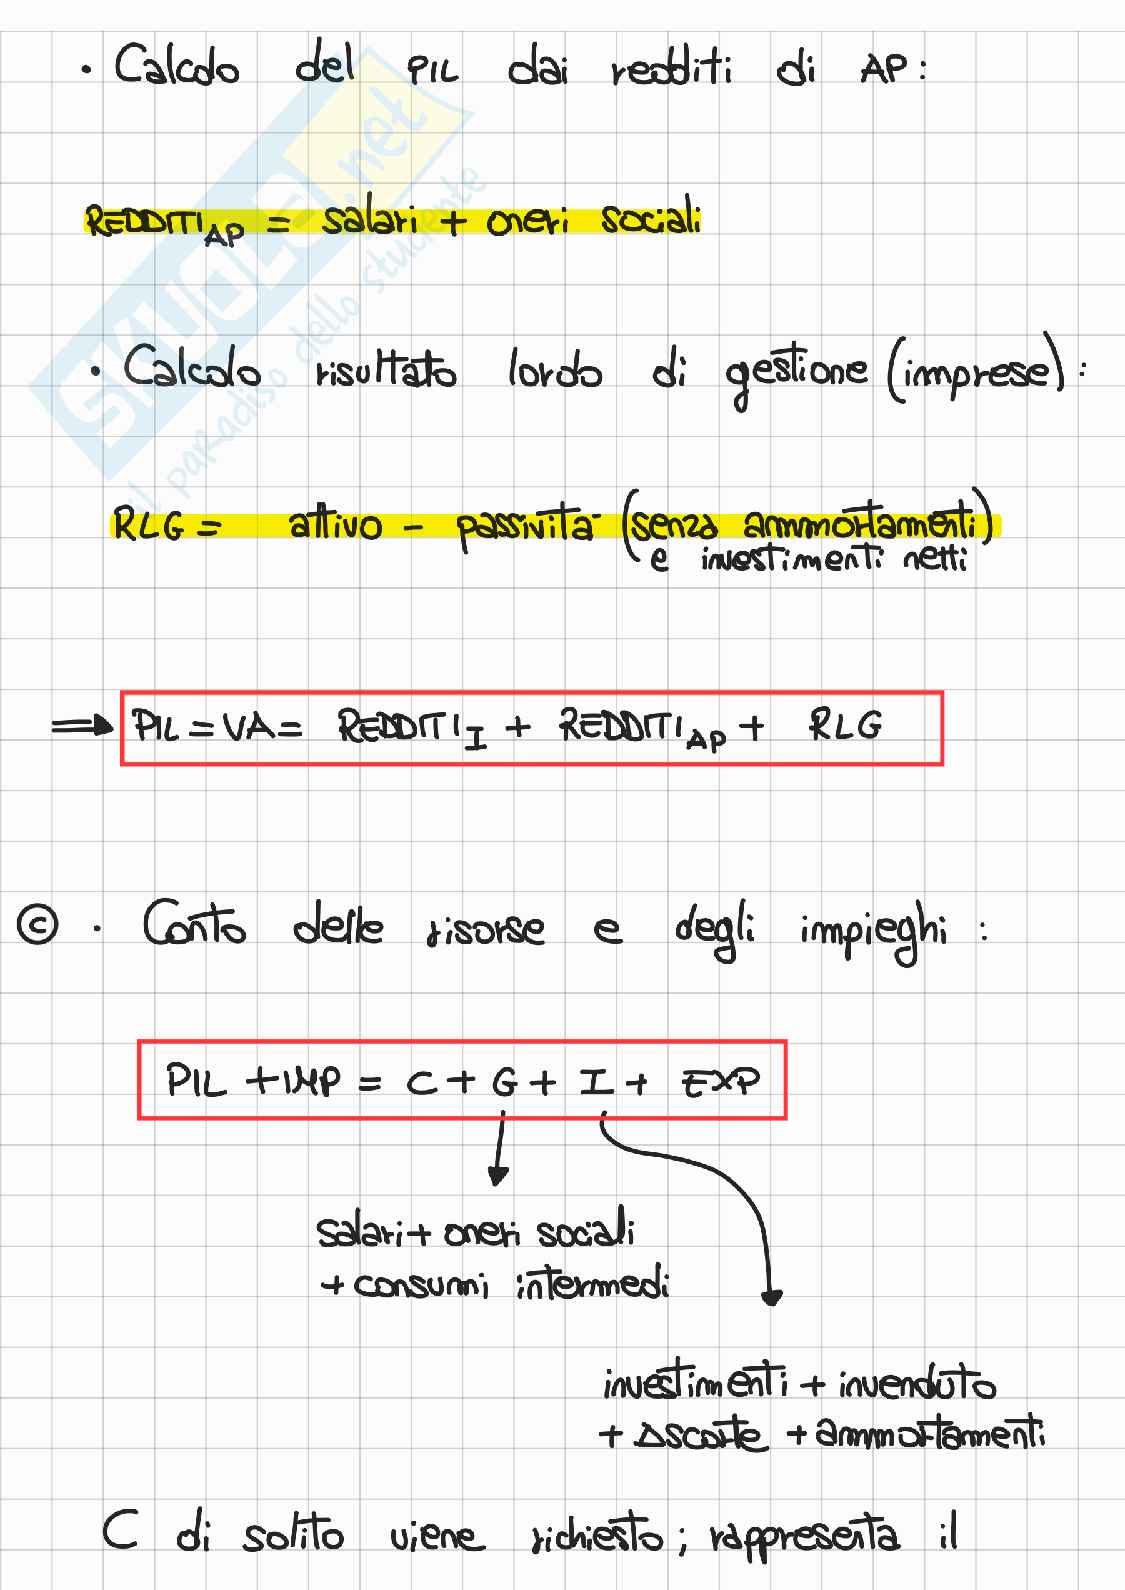 • Calcolo del PIL dai redditi di AP:
REDDITI_AP = salari + oneri sociali
• Calcolo risultato lordo di gestione (imprese):
RLG = attivo - passività (senza ammmortamenti)
e investimenti netti
⇒ PIL = VA = REDDITI_I + REDDITI_AP + RLG
© • Conto delle risorse e degli impieghi:
PIL + IMP = C + G + I + EXP
salari + oneri sociali
+ consumi intermedi
investimenti + invenduto
+ Δscorte + ammmortamenti
C di solito viene richiesto; rappresenta il
SKUOLA.net
il paradiso dello studente